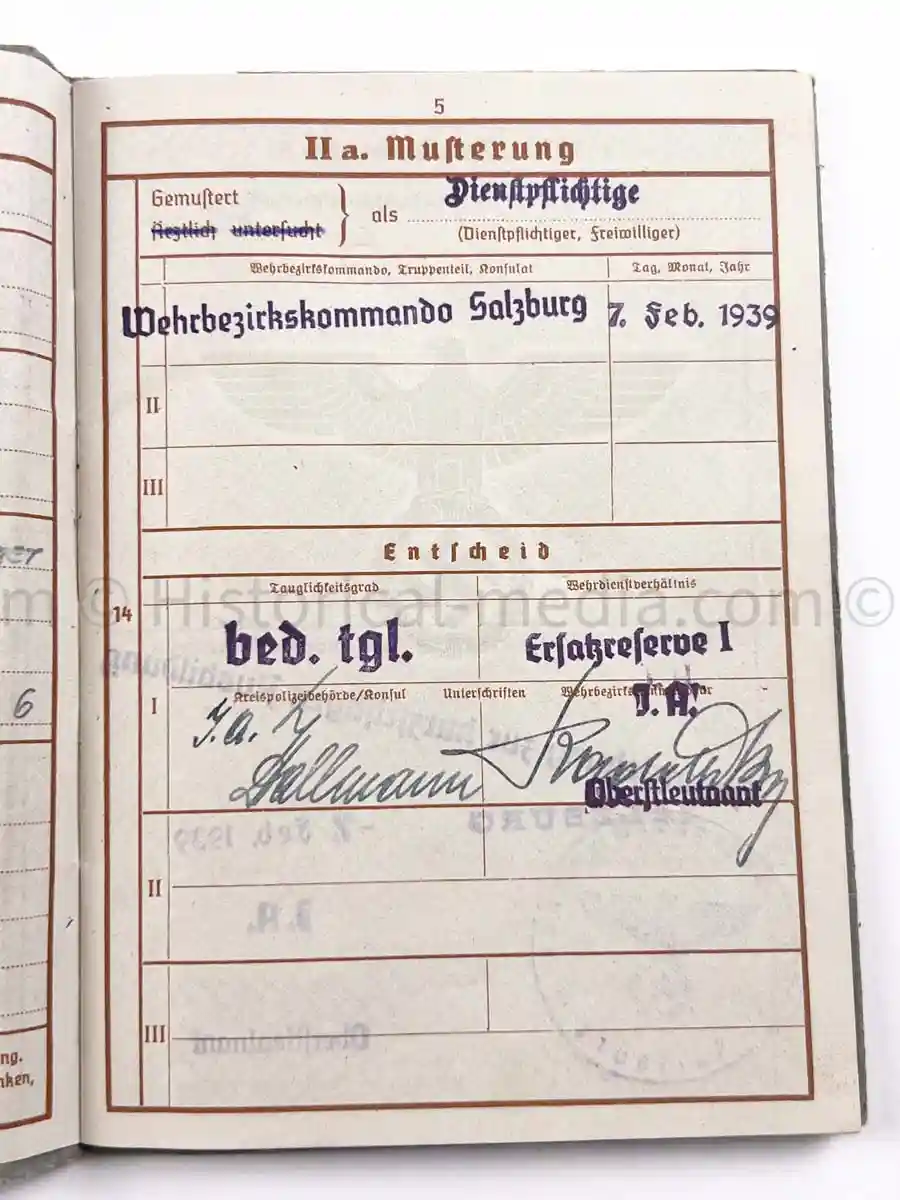 5
II a. Musterung
Gemustert
Ärztlich untersucht
als Dienstpflichtige
(Dienstpflichtiger, Freiwilliger)
Wehrbezirkskommando, Truppenteil, Konsulat
Tag, Monat, Jahr
Wehrbezirkskommando Salzburg
7. Feb. 1939
II
III
Entscheid
Tauglichkeitsgrad
Wehrdienstverhältnis
© Historical-media.com ©
14
bed. tgl.
Ersatzreserve I
I
Kreispolizeibehörde/Konsul
Unterschriften
J.A.
J.a.
Oberstleutnant
- 7. Feb. 1939
SALZBURG
II
J.A.
III
Oberstleutnant
6
ng.
nken,